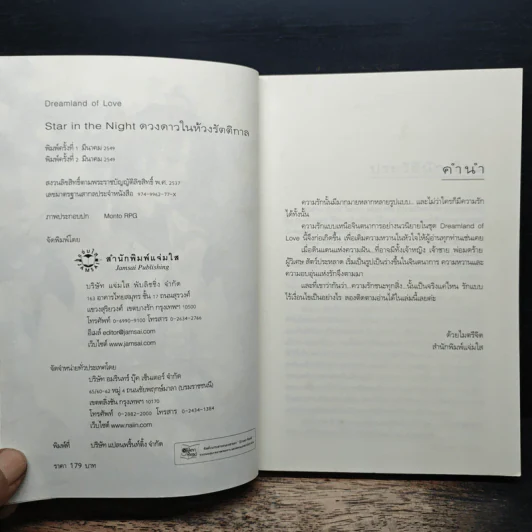 Dreamland of Love
Star in the Night ดวงดาวในห้วงรัตติกาล
พิมพ์ครั้งที่ 1 มีนาคม 2549
พิมพ์ครั้งที่ 2 มีนาคม 2549
สงวนลิขสิทธิ์ตามพระราชบัญญัติลิขสิทธิ์ พ.ศ. 2537
เลขมาตรฐานสากลประจำหนังสือ 974-9962-77-8
ภาพประกอบปก Monto RPG
จัดพิมพ์โดย
สำนักพิมพ์แจ่มใส
Jamsai Publishing
บริษัท แจ่มใส พับลิชชิ่ง จำกัด
163 อาคารไทยสมุทร ชั้น 17 ถนนสุรวงศ์
แขวงสุริยวงศ์ เขตบางรัก กรุงเทพฯ 10500
โทรศัพท์ 0-6990-9100 โทรสาร 0-2634-2766
อีเมล์ editor@jamsai.com
เว็บไซต์ www.jamsai.com
จัดจำหน่ายทั่วประเทศโดย
บริษัท อมรินทร์ บุ๊ค เซ็นเตอร์ จำกัด
หมู่ 4 ถนนชัยพฤกษ์มาลา (บรมราชชนนี)
เขตตลิ่งชัน กรุงเทพฯ 10170
โทรศัพท์ 0-2882-2000 โทรสาร 0-2434-1384
เว็บไซต์ www.naiin.com
พิมพ์ที่ บริษัท แปลนพริ้นท์ติ้ง จำกัด
ราคา 179 บาท
คำนำ
ความรักนั้นมีมากมายหลากหลายรูปแบบ.. และไม่ว่าใครก็มีความรัก
ได้ทั้งนั้น
ความรักแบบเหนือจินตนาการอย่างนวนิยายในชุด Dreamland of
Love นี้จึงก่อเกิดขึ้น เพื่อเติมความหวานในหัวใจให้ผู้อ่านทุกท่านเช่นเคย
เมื่อดินแดนแห่งความฝัน.. ที่อาจมีทั้งเจ้าหญิง เจ้าชาย พ่อมดร้าย
ผู้วิเศษ สัตว์ประหลาด เริ่มเป็นรูปเป็นร่างขึ้นในจินตนาการ ความหวานและ
ความอบอุ่นแห่งรักจึงตามมา
และที่เขาว่ากันว่า.. ความรักชนะทุกสิ่ง นั้นเป็นจริงแค่ไหน รักแบบ
ไร้เงื่อนไขเป็นอย่างไร ลองติดตามอ่านได้ในเล่มนี้เลยค่ะ
ด้วยไมตรีจิต
สำนักพิมพ์แจ่มใส